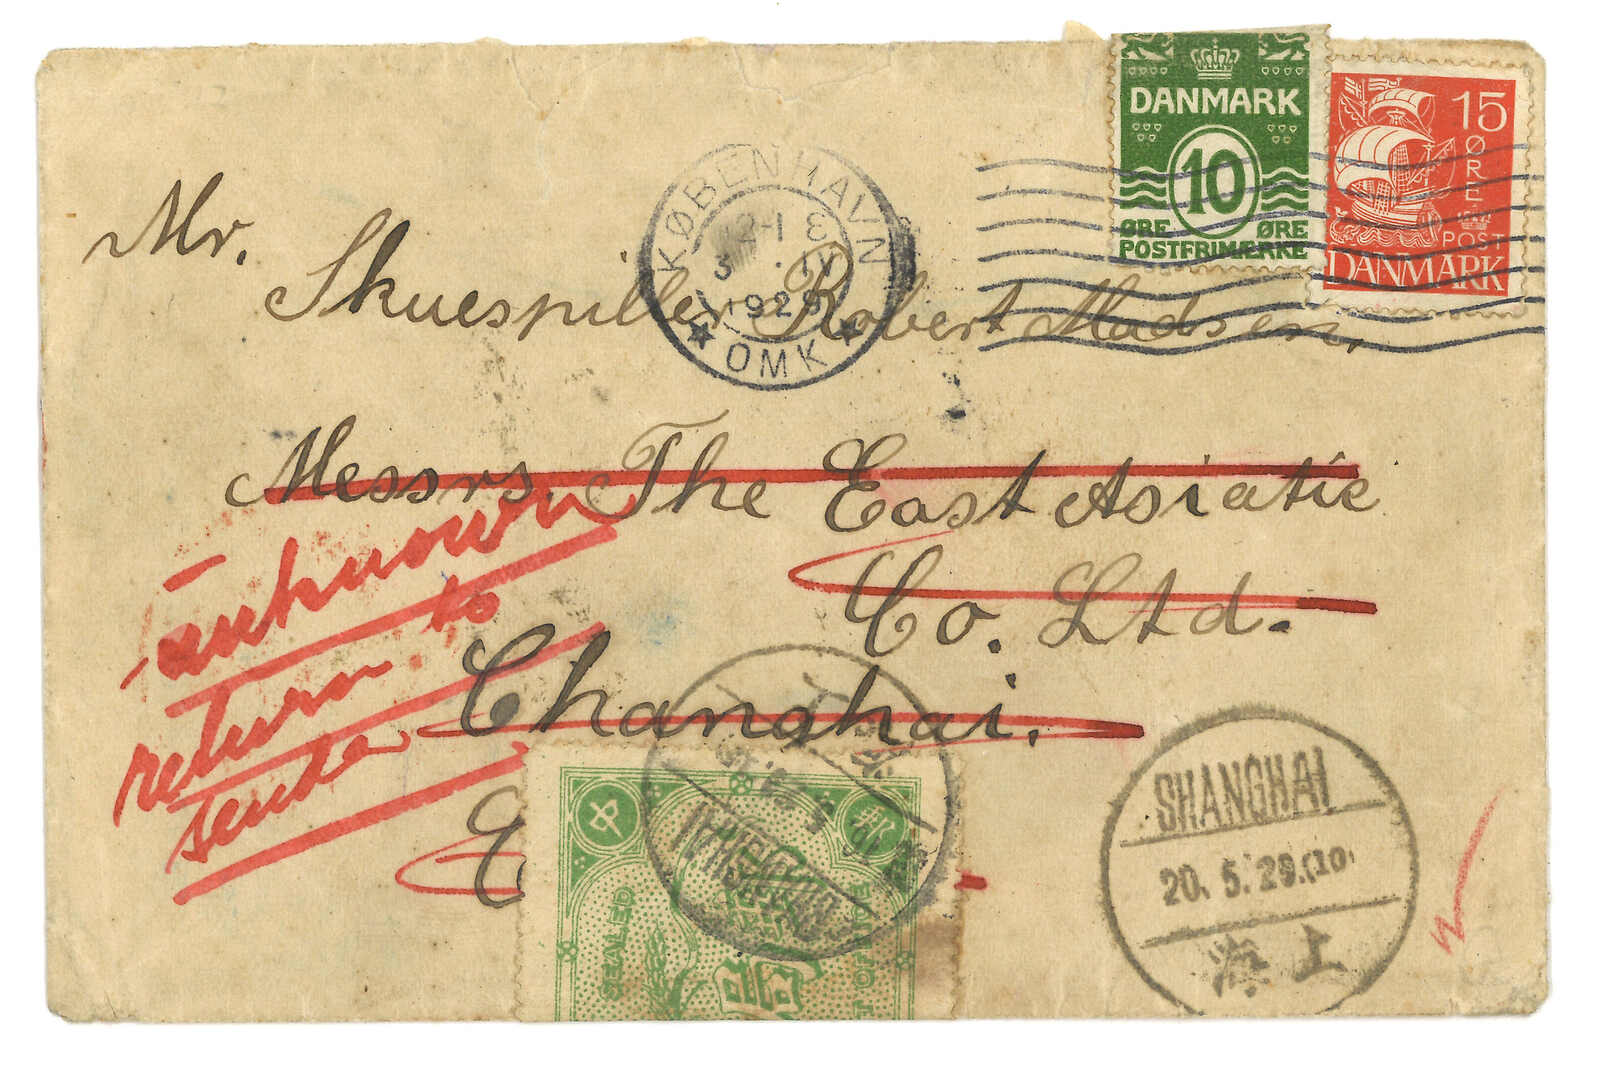 DANMARK
10
ØRE ØRE
POSTFRIMÆRKE
15
ØRE
POST
DANMARK
KØBENHAVN
1928
OMK
Mr.
Skuespiller Robert Madsen,
Messrs. The East Asiatic
Co. Ltd.
Changhai.
unknown
return to
sender
SEALED
SHANGHAI
SHANGHAI
20. 5. 28. (10)
海上